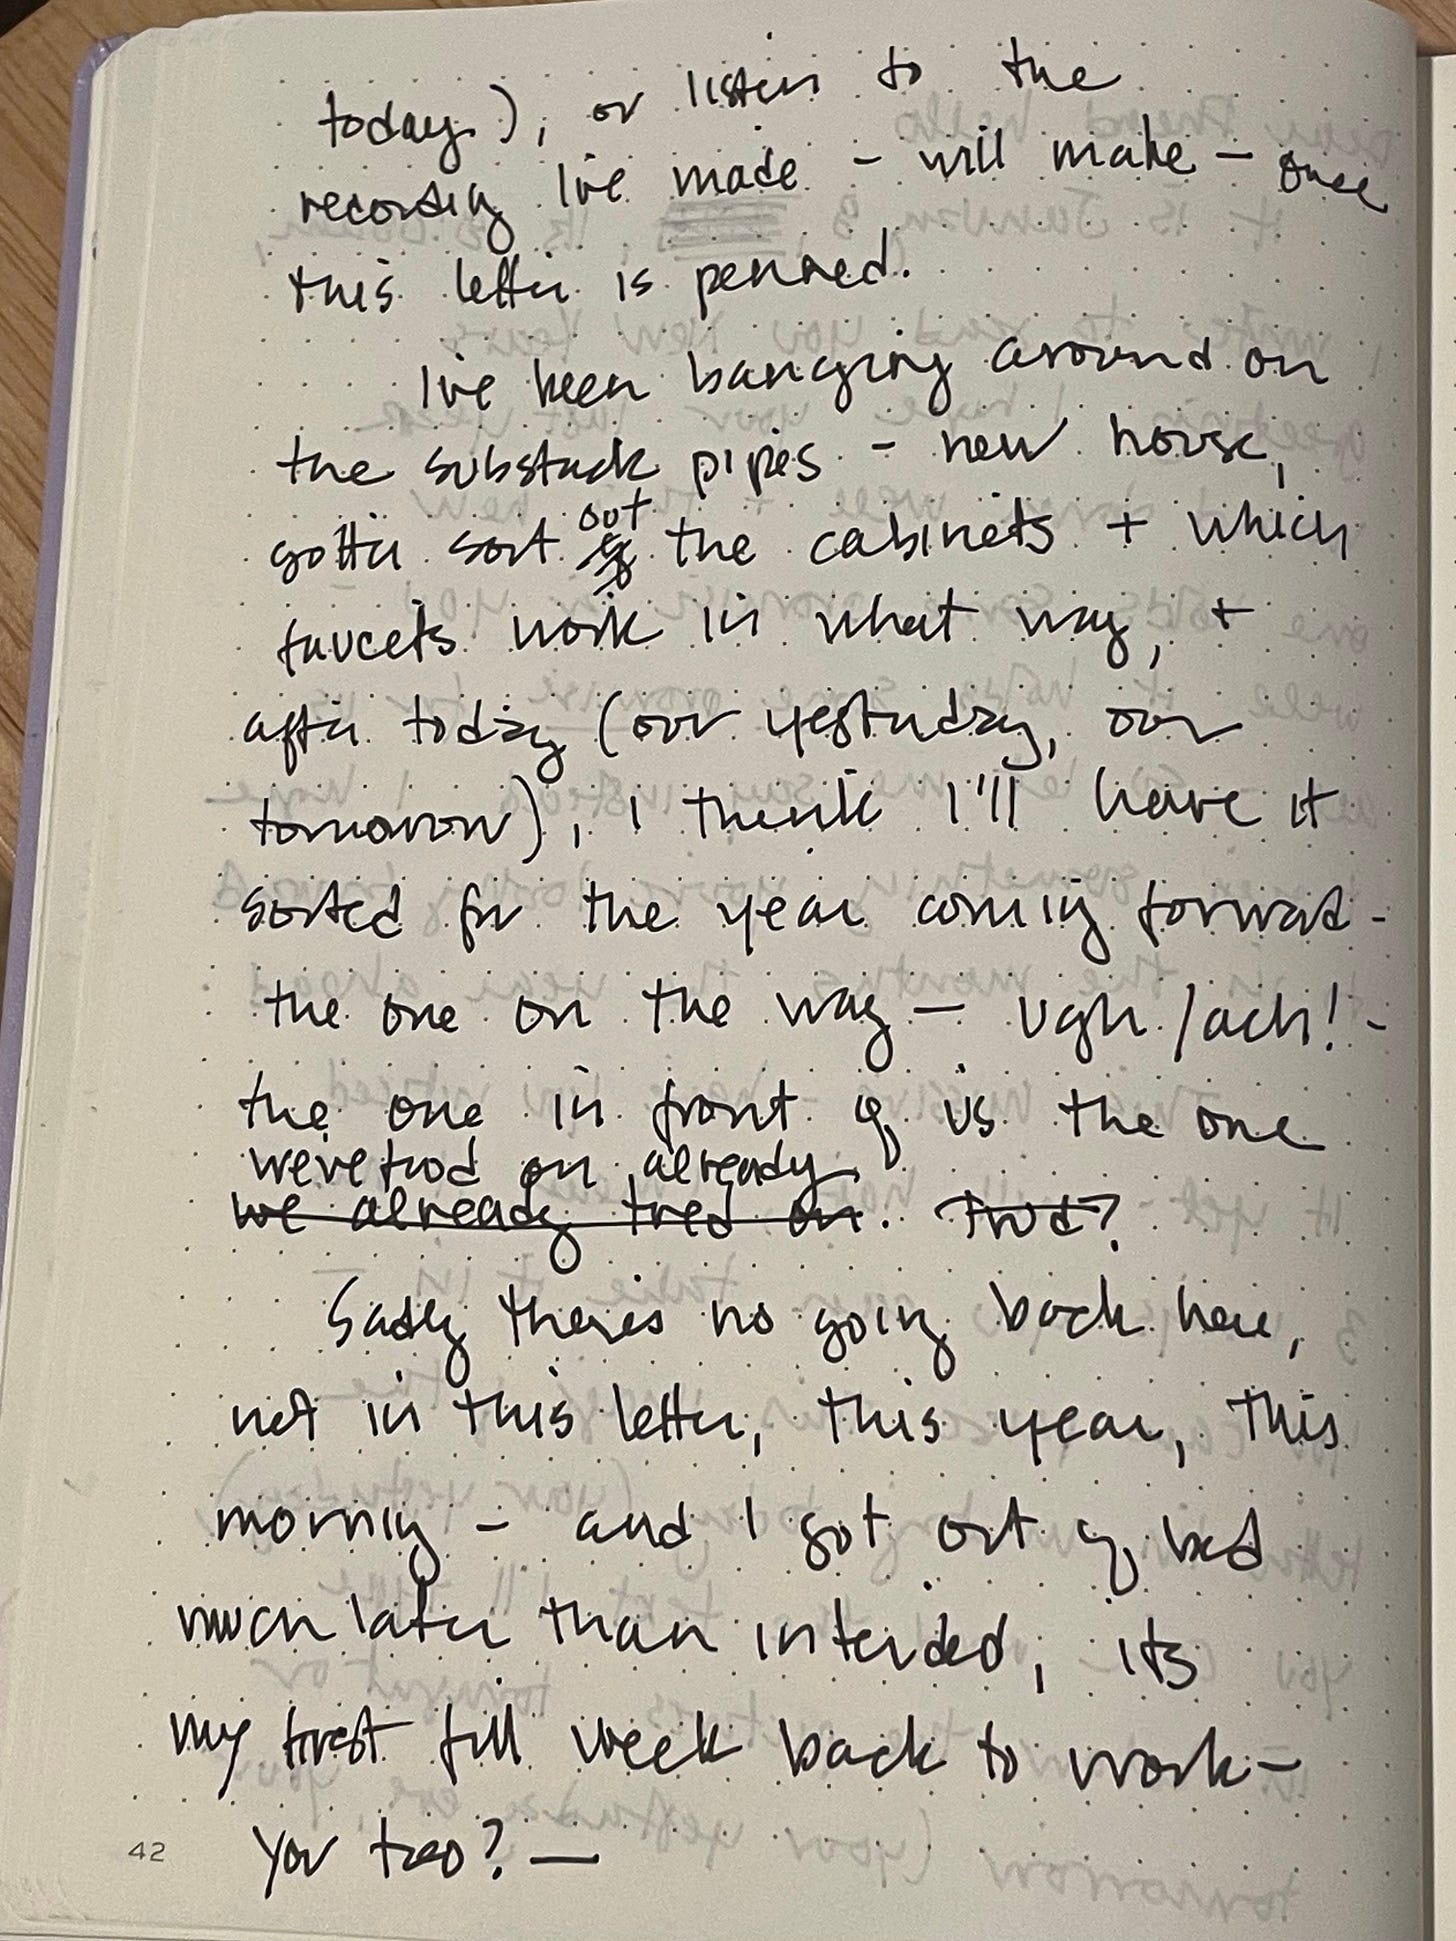 today), or listen to the
recording I've made - will make - once
this letter is penned.
I've been banging around on
the substack pipes - new house,
gotta sort out the cabinets + which
faucets work in what way, +
after today (our yesterday, our
tomorrow), I think I'll have it
sorted for the year coming forward -
the one on the way - ugh/ach! -
the one in front of us the one
we've trod on already
we already tred on. Trod?
Sadly there's no going back here,
not in this letter, this year, this
morning - and I got out of bed
much later than intended, its
my first full week back to work -
you too? -
42